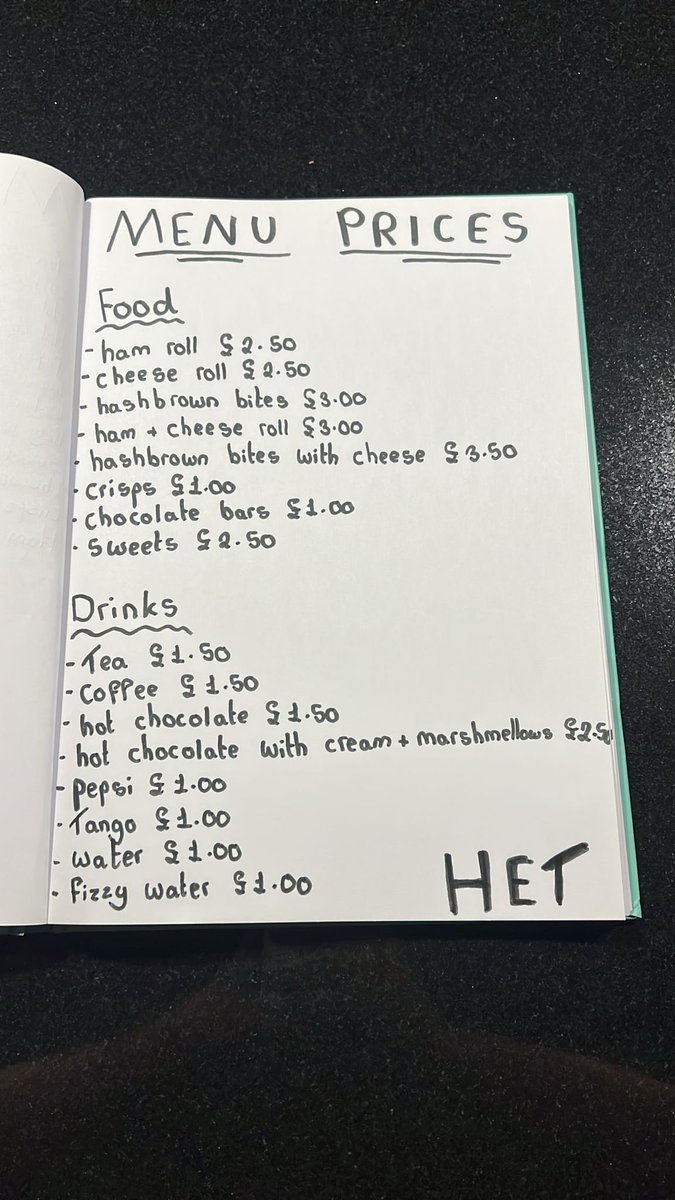 MENU PRICES
Food
- ham roll £2.50
- cheese roll £2.50
- hashbrown bites £3.00
- ham + cheese roll £3.00
- hashbrown bites with cheese £3.50
- crisps £1.00
- chocolate bars £1.00
- sweets £2.50
Drinks
- Tea £1.50
- Coffee £1.50
- hot chocolate £1.50
- hot chocolate with cream + marshmellows £2.50
- pepsi £1.00
- Tango £1.00
- water £1.00
- fizzy water £1.00
HET